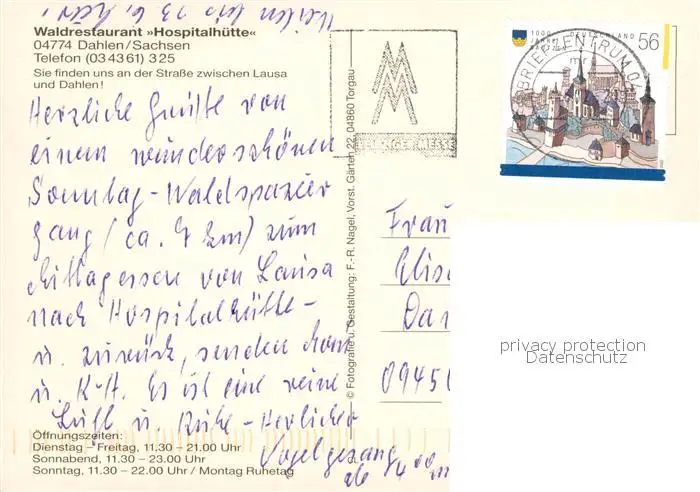 Waldrestaurant »Hospitalhütte«
04774 Dahlen/Sachsen
Telefon (03 43 61) 3 25
Sie finden uns an der Straße zwischen Lausa
und Dahlen!
Herzliche Grüße von
einem wunderschönen
Sonntag-Waldspazier
gang (ca. 7 km) zum
Mittagessen von Lausa
nach Hospitalhütte-
u. zurück, senden
u. K-H. Es ist eine reine
Luft u. Ruhe - Herrlicher
Vogelgesang
ab
Öffnungszeiten:
Dienstag – Freitag, 11.30 – 21.00 Uhr
Sonnabend, 11.30 – 23.00 Uhr
Sonntag, 11.30 – 22.00 Uhr / Montag Ruhetag
© Fotografie u. Gestaltung: F.-R. Nagel, Vorst. Gärten 22, 04860 Torgau
LEIPZIGER MESSE
BRIEFZENTRUM 04
mr
1000 JAHRE BAUTZEN
DEUTSCHLAND
56
Frau
Elis
Dan
09456
privacy protection
Datenschutz